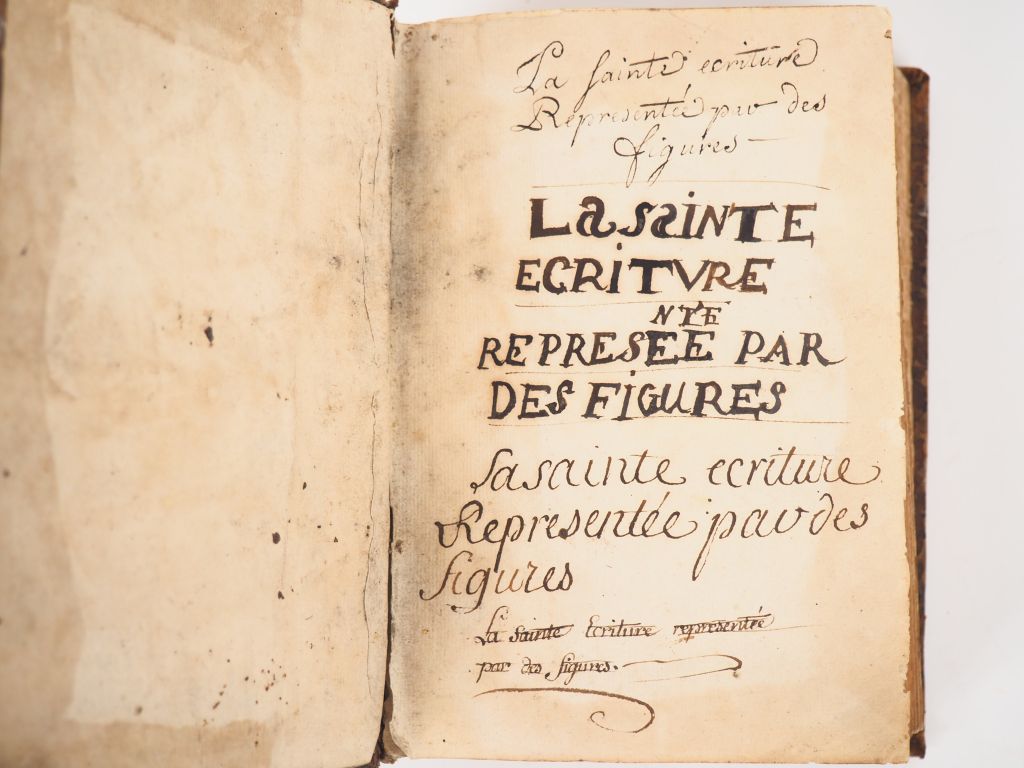 La sainte ecriture
Representée par des
figures
La sainte
ecriture
nte
represee par
des figures
La sainte ecriture
Representée par des
figures
La sainte Ecriture representée
par des figures.